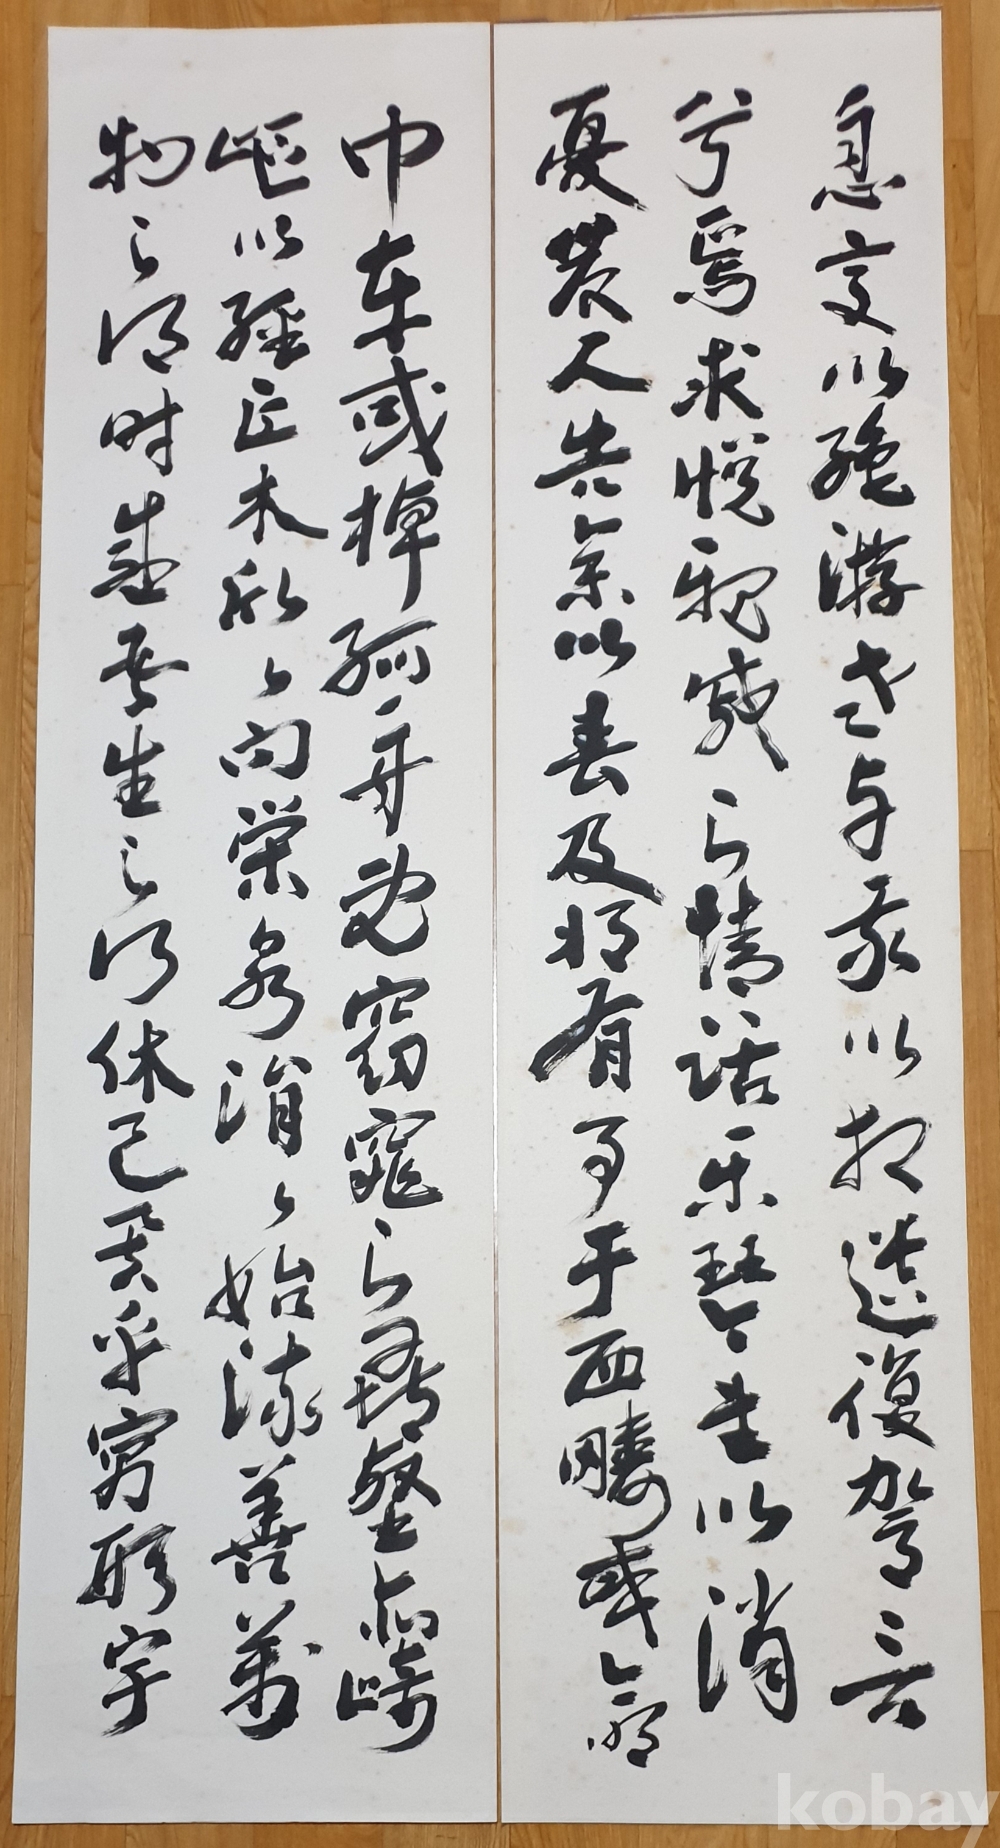 息交以絶游世与我以相遺復駕言
兮焉求悅親戚之情話樂琴書以消
憂農人告余以春及將有事于西疇或命
巾車或棹孤舟既窈窕之尋壑亦崎
嶇以經丘木欣々向榮泉涓々始流善萬
物之得時感吾生之行休已矣乎寓形宇
kobay